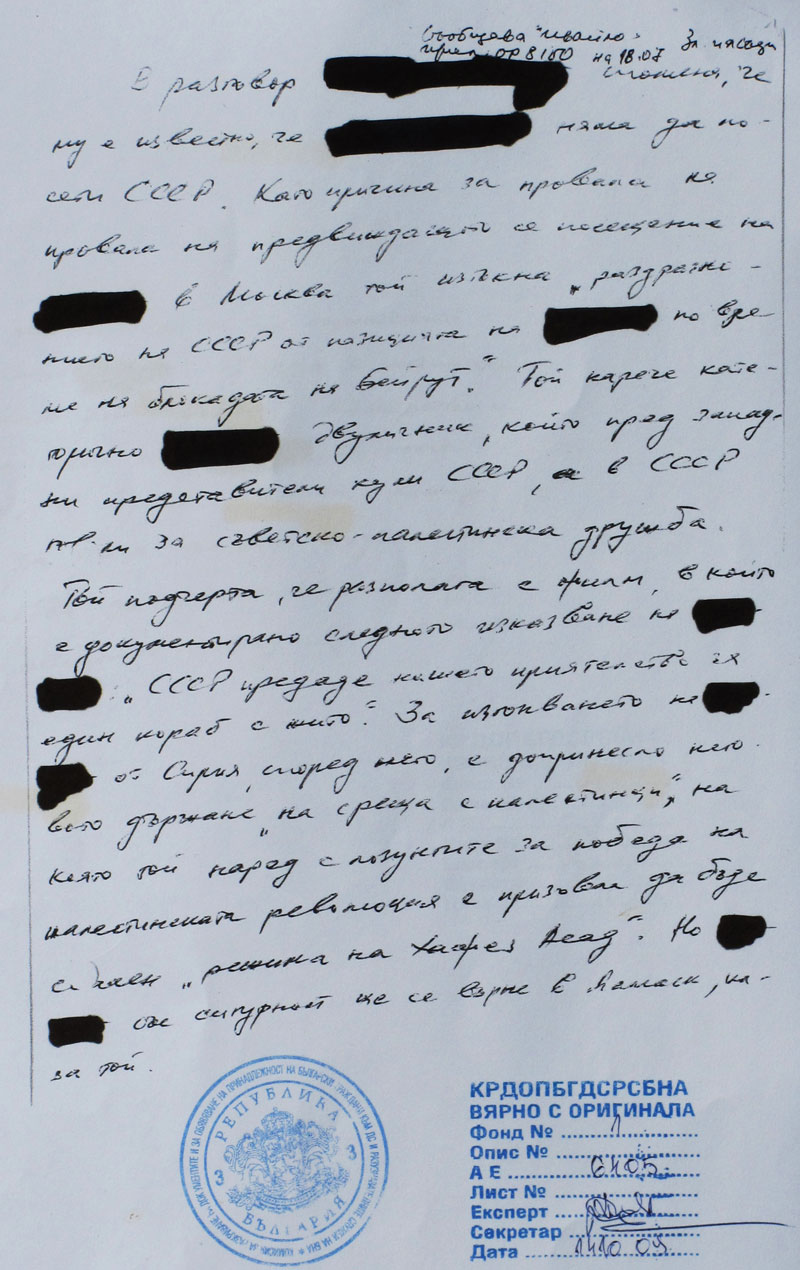 Съобщава "Ивайло"
на 18.07
В разговор спомена, че
му е известно, че няма да по-
сети СССР. Като причина за провала на
провала на предвиждащото се посещение на
в Москва той изтъкна „раздразне-
нието на СССР от позицията на по вре-
ме на блокадата на Бейрут." Той нарече кате-
горично двуличник, който пред запад-
ни представители хули СССР, а в СССР
за съветско-палестинска дружба.
Той подчерта, че разполага с филм, в който
е документирано следното изказване на
: „СССР предаде нашето приятелство за
един кораб с жито". За изгонването на
от Сирия, според него, е допринесло него-
вото държане „на среща с палестинци", на
която той наред с лозунгите за победа на
палестинската революция е призовал да бъде
„режима на Хафез Асад". Но
със сигурност ще се върне в Дамаск, ка-
за той.
РЕПУБЛИКА
БЪЛГАРИЯ
3 3
КРДОПБГДСРСБНА
ВЯРНО С ОРИГИНАЛА
Фонд № 1
Опис №
А Е 6405
Лист №
Експерт
Секретар
Дата 14 10 09